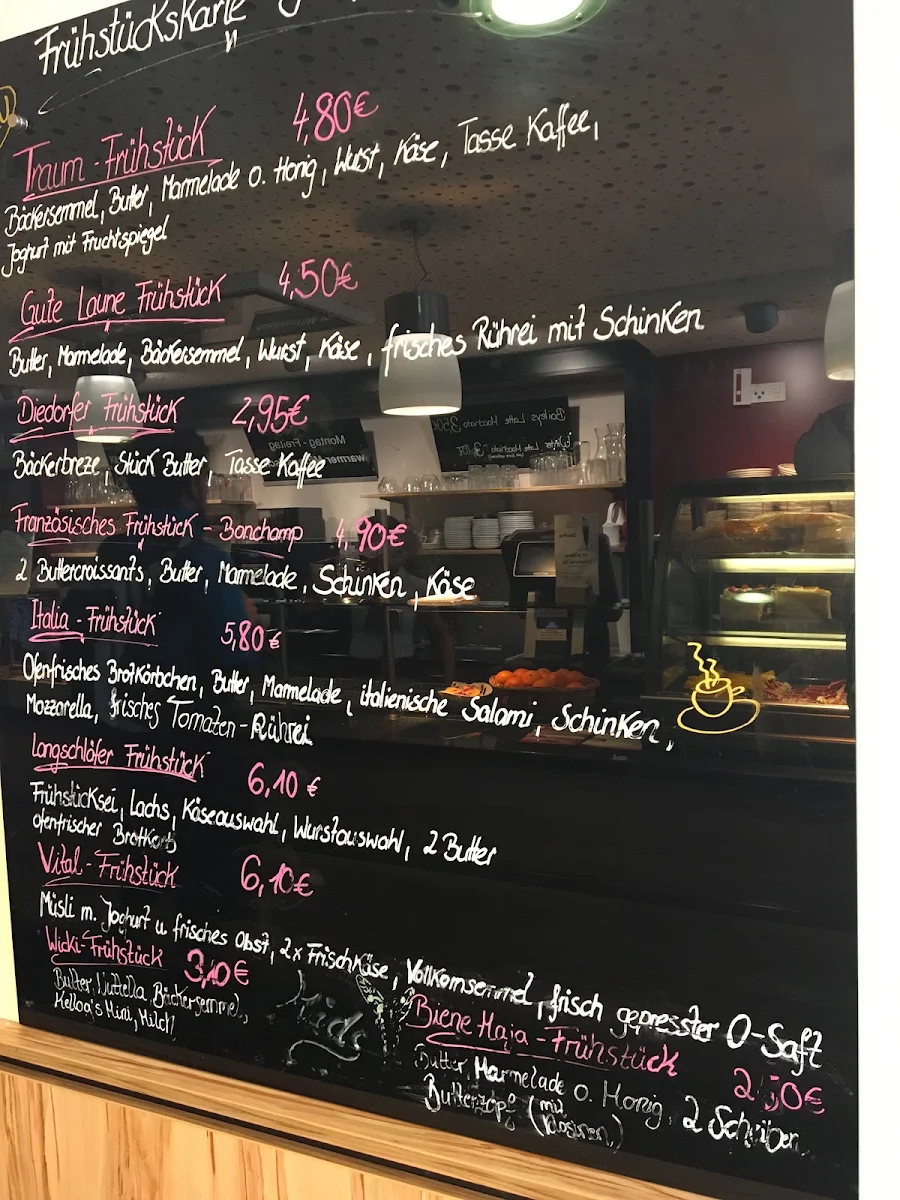 Frühstückskarte
Traum-Frühstück 4,80€
Bäckersemmel, Butter, Marmelade o. Honig, Wurst, Käse, Tasse Kaffee,
Joghurt mit Fruchtspiegel
Gute Laune Frühstück 4,50€
Butter, Marmelade, Bäckersemmel, Wurst, Käse, frisches Rührei mit Schinken
Diedorfer Frühstück 2,95€
Bäckerbreze, Stück Butter, Tasse Kaffee
Französisches Frühstück - Bonchamp 4,90€
2 Buttercroissants, Butter, Marmelade, Schinken, Käse
Italia-Frühstück 5,80€
Ofenfrisches Brotkörbchen, Butter, Marmelade, italienische Salami, Schinken,
Mozzarella, frisches Tomaten-Rührei
Langschläfer Frühstück 6,10 €
Frühstücksei, Lachs, Käseauswahl, Wurstauswahl, 2 Butter
ofenfrischer Brotkorb
Vital-Frühstück 6,10€
Müsli m. Joghurt u frisches Obst, 2x Frischkäse, Vollkornsemmel, frisch gepresster O-Saft
Wicki-Frühstück 3,10€
Butter, Nutella, Bäckersemmel,
Kellog's Mini, Milch
Biene Maja-Frühstück
2,50€
Butter, Marmelade o. Honig, 2 Scheiben
Butterzopf (mit Rosinen)